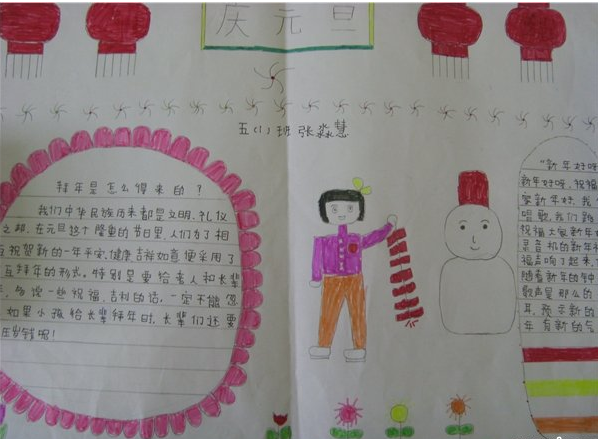 庆元旦
五(1)班张淼慧
拜年是怎么得来的?
我们中华民族历来都是文明、礼仪
之邦,在元旦这个隆重的节日里,人们为了相
互祝贺新的一年平安、健康、吉祥如意便采用了
互拜年的形式。特别是要给老人和长辈
多说一些祝福、吉利的话,一定不能忽
如果小孩给长辈拜年时,长辈们还要
压岁钱呢!
“新年好呀
新年好呀,祝福
家新年好,我
唱歌,我们跳
祝福大家新年
录音机的新年
福声响了起来
随着新年的钟
歌声是那么的
耳,预示新的
年有新的气